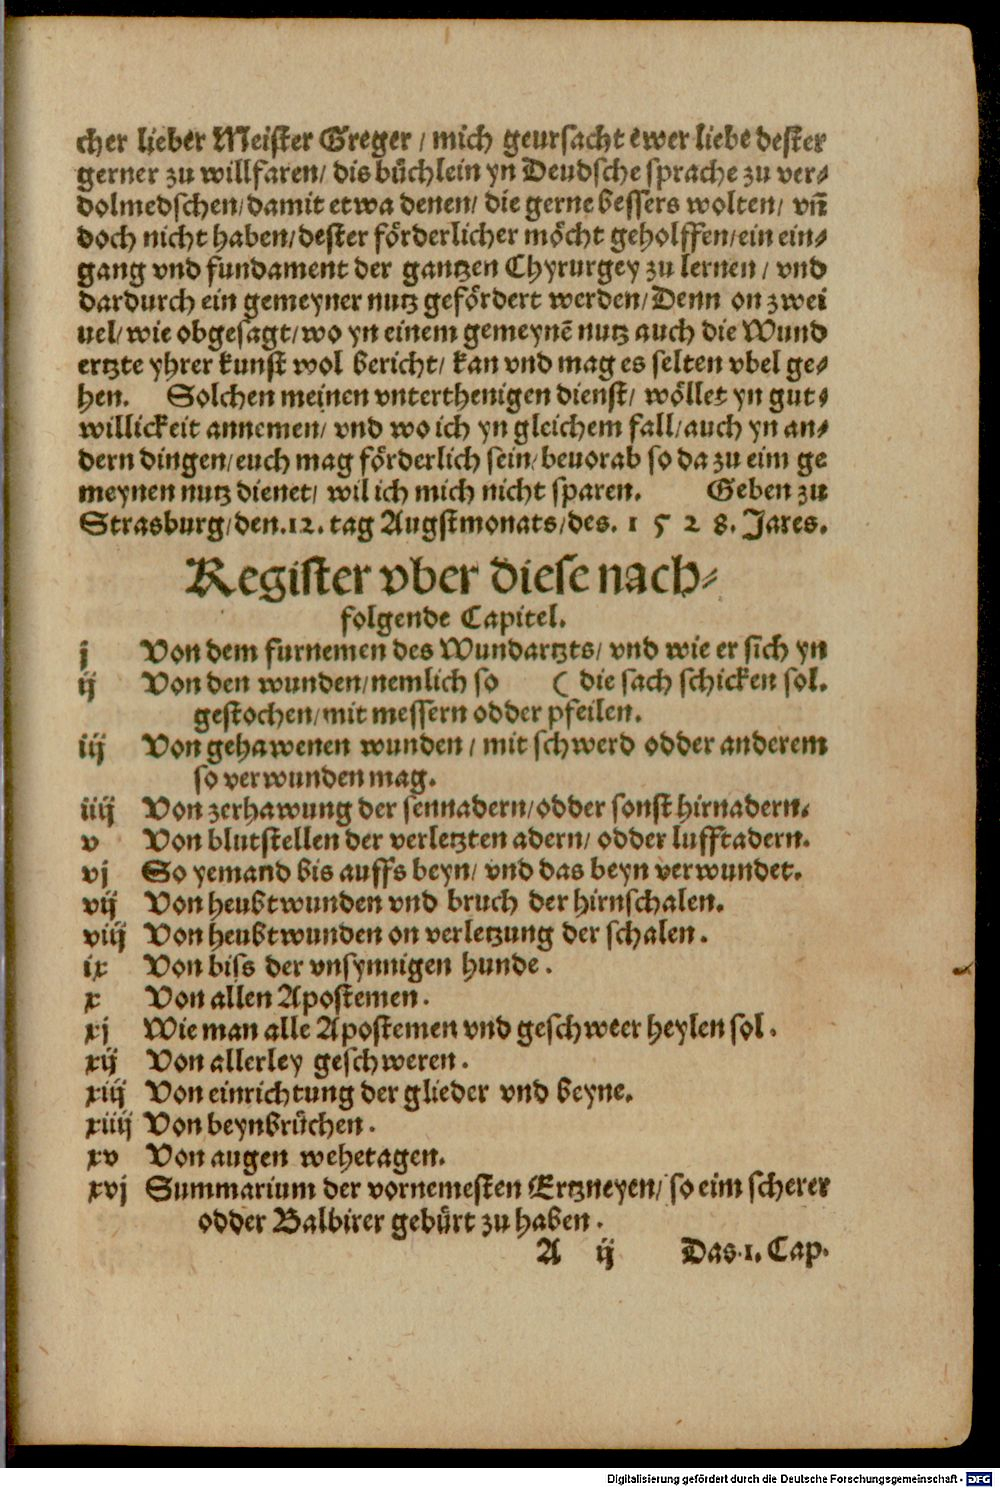 cher lieber Meister Greger / mich geursacht ewer liebe dester
gerner zu willfaren / dis bůchlein yn Deudsche sprache zu ver⸗
dolmedschen / damit etwa denen / die gerne bessers wolten / vñ
doch nicht haben / dester förderlicher möcht geholffen / ein ein⸗
gang vnd fundament der gantzen Chyrurgey zu lernen / vnd
dardurch ein gemeyner nutz gefördert werden / Denn on zwei
uel / wie obgesagt / wo yn einem gemeynē nutz auch die Wund
ertzte yhrer kunst wol bericht / kan vnd mag es selten vbel ge⸗
hen. Solchen meinen vnterthenigen dienst / wöllet yn gut⸗
willickeit annemen / vnd wo ich yn gleichem fall / auch yn an⸗
dern dingen / euch mag förderlich sein / beuorab so da zu eim ge
meynen nutz dienet / wil ich mich nicht sparen. Geben zu
Strasburg / den .12. tag Augstmonats / des. 1528. Jares.
Register vber diese nach⸗
folgende Capitel.
j Von dem furnemen des Wundartzts / vnd wie er sich yn
ij Von den wunden / nemlich so ( die sach schicken sol.
gestochen / mit messern odder pfeilen.
iij Von gehawenen wunden / mit schwerd odder anderem
so verwunden mag.
iiij Von zerhawung der sennadern / odder sonst hirnadern.
v Von blutstellen der verletzten adern / odder lufftadern.
vj So yemand bis auffs beyn / vnd das beyn verwundet.
vij Von heubtwunden vnd bruch der hirnschalen.
viij Von heubtwunden on verletzung der schalen.
ix Von biss der vnsynnigen hunde.
x Von allen Apostemen.
xj Wie man alle Apostemen vnd geschweer heylen sol.
xij Von allerley geschweren.
xiij Von einrichtung der glieder vnd beyne.
xiiij Von beynbrůchen.
xv Von augen wehetagen.
xvj Summarium der vornemesten Ertzneyen / so eim scherer
odder Balbirer gebůrt zu haben.
A ij Das .1. Cap.
Digitalisierung gefördert durch die Deutsche Forschungsgemeinschaft - DFG